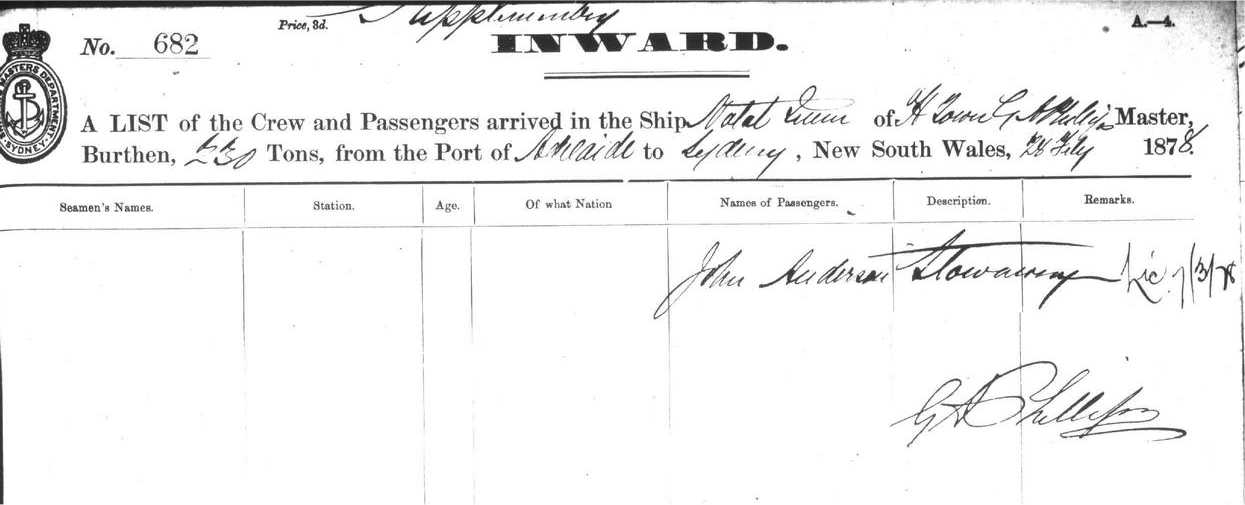 Supplementary
Price, 3d.
A.—4.
No. 682
INWARD.
MASTERS DEPARTMENT
SYDNEY
A LIST of the Crew and Passengers arrived in the Ship Natal Queen of H Town G A Phillips Master,
Burthen, Tons, from the Port of Adelaide to Sydney, New South Wales, 28 Feby 1878.
Seamen's Names. Station. Age. Of what Nation Names of Passengers. Description. Remarks.
John Anderson Stowaway 7/3/78
G A Phillips